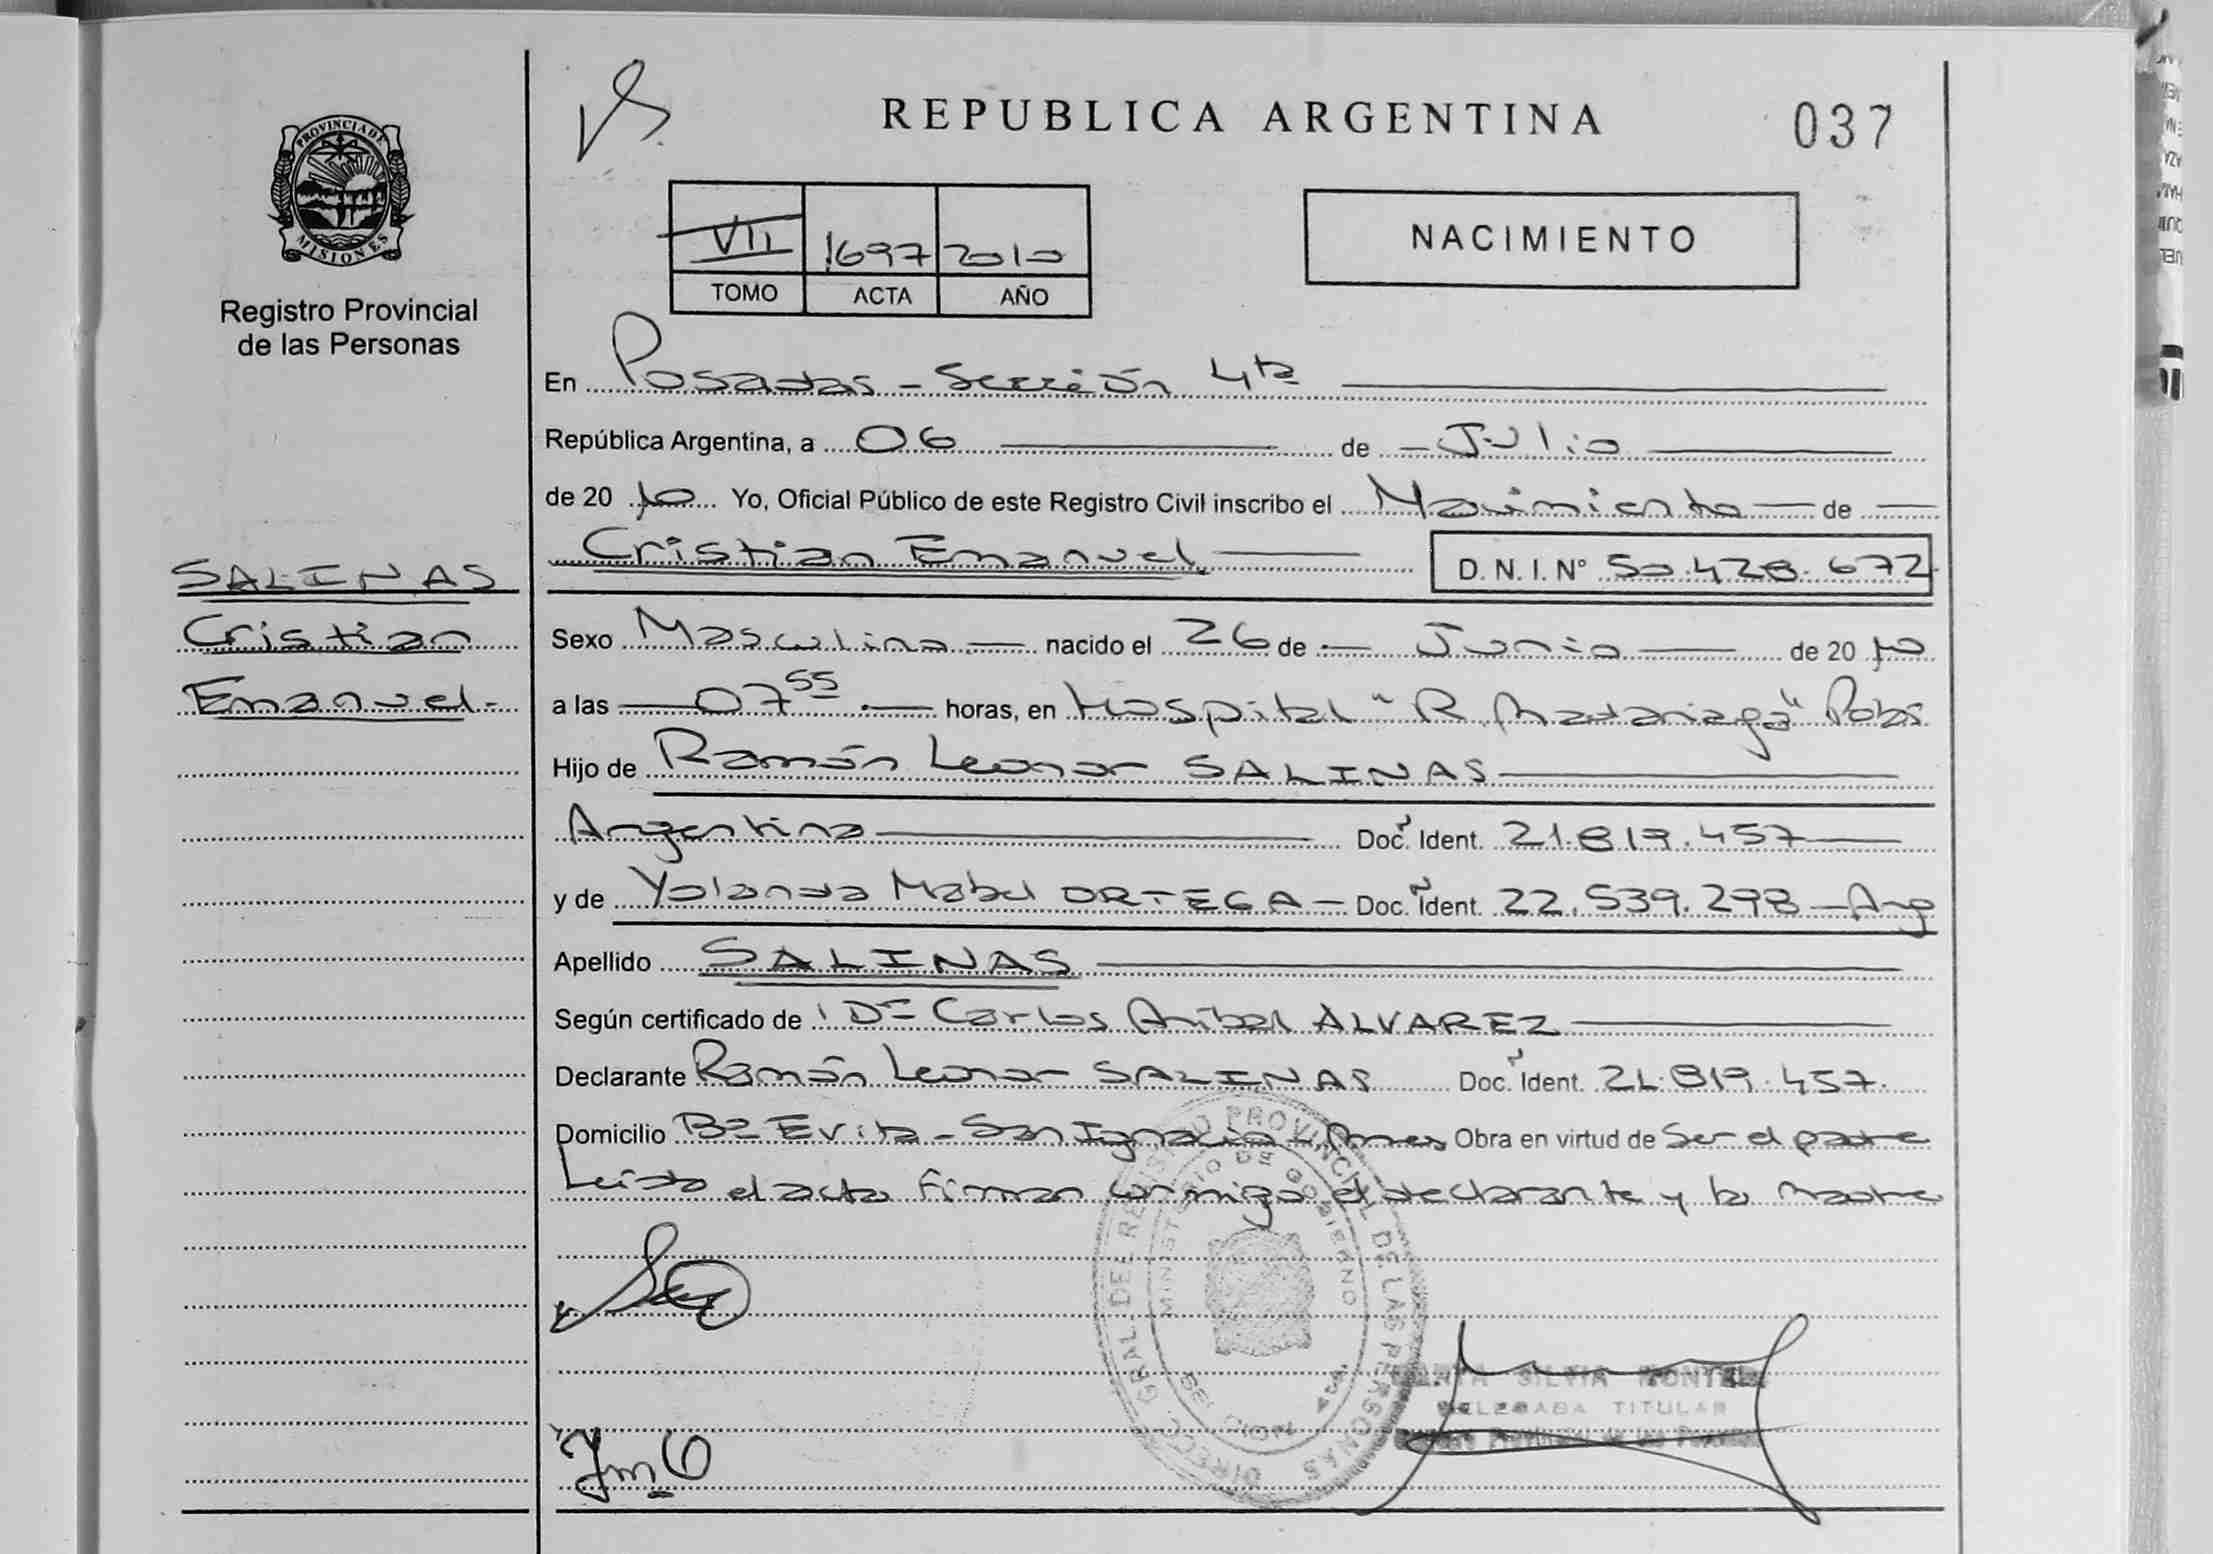 REPUBLICA ARGENTINA
037
PROVINCIA DE
MISIONES
Registro Provincial
de las Personas
VII 1697 2010
TOMO ACTA AÑO
NACIMIENTO
En Posadas - Sección 4ta
República Argentina, a 06 de Julio
de 2010 Yo, Oficial Público de este Registro Civil inscribo el Nacimiento de
Cristian Emanuel D. N. I. N° 50.428.672
SALINAS
Cristian
Emanuel-
Sexo Masculino nacido el 26 de Junio de 2010
a las 07 55 horas, en Hospital "R. Madariaga" Pdas
Hijo de Ramón Leonor SALINAS
Argentina Doc. Ident. 21.819.457
y de Yolanda Mabel ORTEGA - Doc. Ident. 22.539.298 - Arg
Apellido SALINAS
Según certificado de Dr Carlos Anibal ALVAREZ
Declarante Ramón Leonor SALINAS Doc. Ident. 21.819.457.
Domicilio Bo Evita - San Ignacio - Mnes Obra en virtud de Ser el padre
Leida el acta firman conmigo el declarante y la madre
DIRECC. GRAL. DEL REGISTRO PROVINCIAL DE LAS PERSONAS
MINISTERIO DE GOBIERNO
SILVIA
DELEGADA TITULAR
Provincial de las Personas